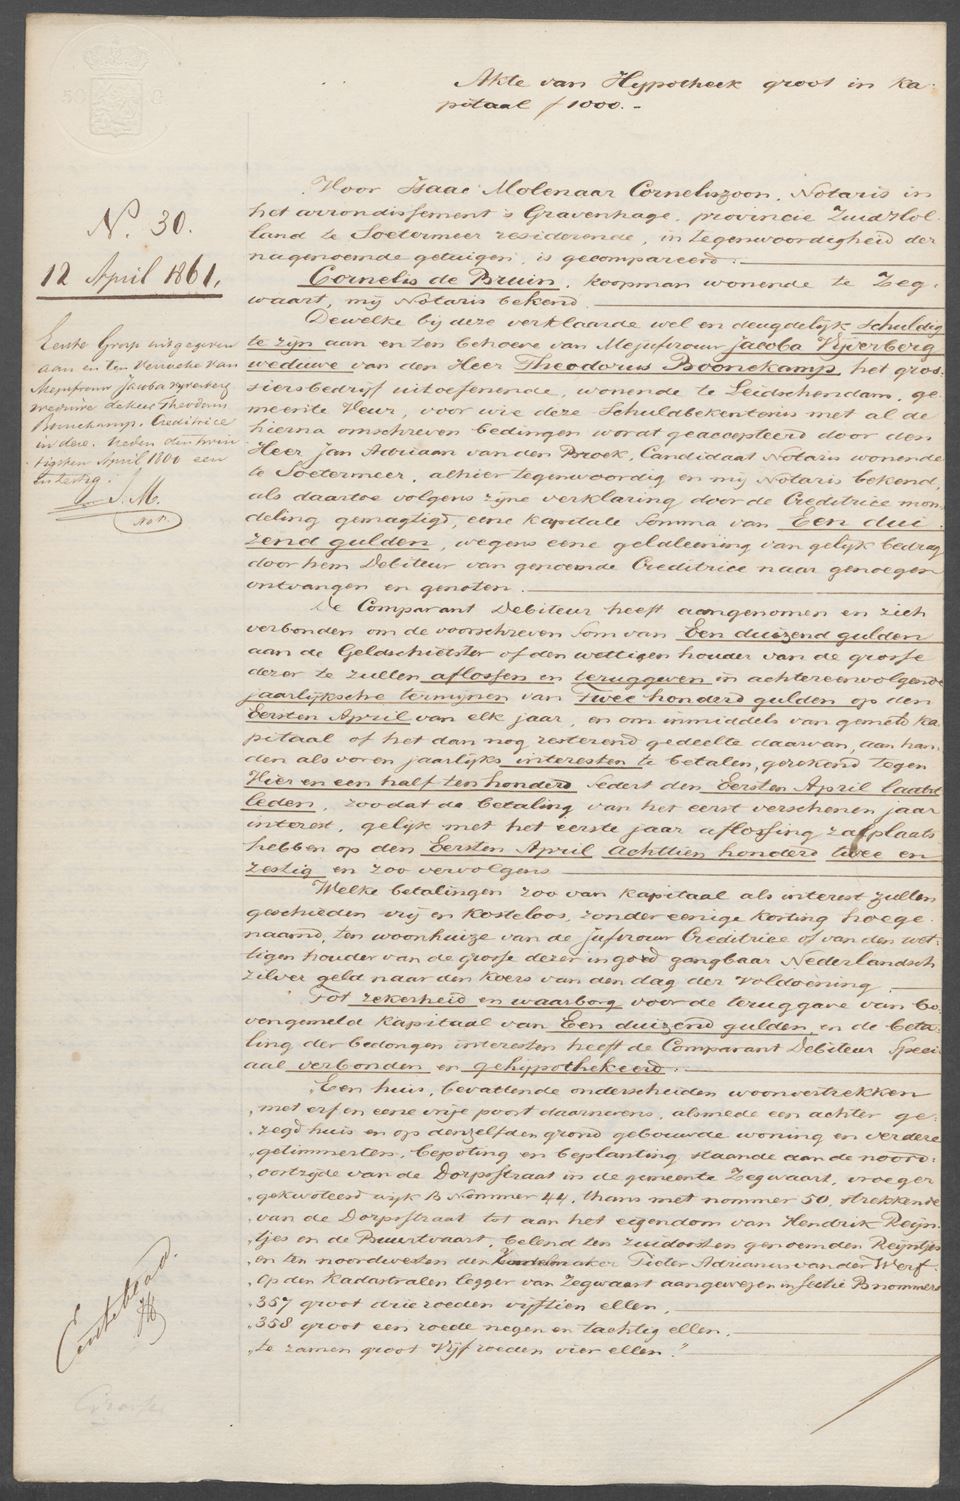 Akte van Hypotheek groot in Ka-
pitaal f 1000.-
N. 30.
12 April 1861.
Eerste Grosse uitgegeven
aan en ten verzoeke van
Mejufvrouw Jacoba Vijverberg
weduwe de Heer Theodorus
Boonekamp, Creditrice
in deze. Heden den twin
tigsten April 1800 een
en zestig.
I. M.
Not.
Voor Isaac Molenaar Corneliszoon, Notaris in
het arrondissement 's Gravenhage, provincie Zuid Hol-
land te Soetermeer resideerende, in tegenwoordigheid der
nagenoemde getuigen, is gecompareerd:
Cornelis de Bruin, koopman wonende te Zeg-
waart, mij Notaris bekend.
Dewelke bij deze verklaarde wel en deugdelijk schuldig
te zijn aan en ten behoeve van Mejufvrouw Jacoba Vijverberg
weduwe van den Heer Theodorus Boonekamp, het gros-
siersbedrijf uitoefenende, wonende te Leidschendam, ge-
meente Veur, voor wie deze Schuldbekentenis met al de
hierna omschreven bedingen wordt geaccepteerd door den
Heer Jan Adriaan van den Broek, Candidaat Notaris wonende
te Soetermeer, alhier tegenwoordig en mij Notaris bekend,
als daartoe volgens zijne verklaring door de Creditrice mon-
deling gemagtigd, eene Kapitale Somma van Een dui
zend gulden, wegens eene geldleening van gelijk bedrag
door hem Debiteur van genoemde Creditrice naar genoegen
ontvangen en genoten.
De Comparant Debiteur heeft aangenomen en zich
verbonden om de voorschreven Som van Een duizend gulden
aan de Geldschietster of den wettigen houder van de grosse
dezer te zullen aflossen en teruggeven in achtereenvolgende
jaarlijksche termijnen van Twee honderd gulden op den
Eersten April van elk jaar, en om inmiddels van gemeld Ka-
pitaal of het dan nog resterend gedeelte daarvan, aan han-
den als voren jaarlijks interesten te betalen, gerekend tegen
Vier en een half ten honderd sedert den Eersten April laatst
leden, zoodat de betaling van het eerst verschenen jaar
interest, gelijk met het eerste jaar aflossing zal plaats
hebben op den Eersten April Achttien honderd twee en
zestig en zoo vervolgens
Welke betalingen zoo van Kapitaal als interest zullen
geschieden vrij en kosteloos, zonder eenige korting hoege-
naamd, ten woonhuize van de Jufvrouw Creditrice of van den wet-
tigen houder van de grosse dezer in goed gangbaar Nederlandsch
zilver geld naar den koers van den dag der voldoening.
Tot zekerheid en waarborg voor de teruggave van bo-
vengemeld Kapitaal van Een duizend gulden, en de beta-
ling der bedongen interesten heeft de Comparant Debiteur Speci
aal verbonden en gehypothekeerd:
„Een huis, bevattende onderscheiden woonvertrekken
„met erf en eene vrije poort daarnevens, alsmede een achter ge-
„zegd huis en op denzelfden grond gebouwde woning en verdere
„getimmerten, bepoting en beplanting staande aan de noord-
„oostzijde van de Dorpsstraat in de gemeente Zegwaart, vroeger
„gekwoteerd wijk B Nommer 44, thans met nommer 50, strekkende
„van de Dorpsstraat tot aan het eigendom van Hendrik Reijn-
„tjes en de Buurtvaart, belend ten zuidoosten genoemden Reijntjes
„en ten noordwesten den Pieter Adrianus van der Werf.
„Op den Kadastralen legger van Zegwaart aangewezen in Sectie B nommers
„357 groot drie roeden vijftien ellen,
„358 groot een roede negen en tachtig ellen,
„te zamen groot Vijf roeden vier ellen.”
Eersteblad.